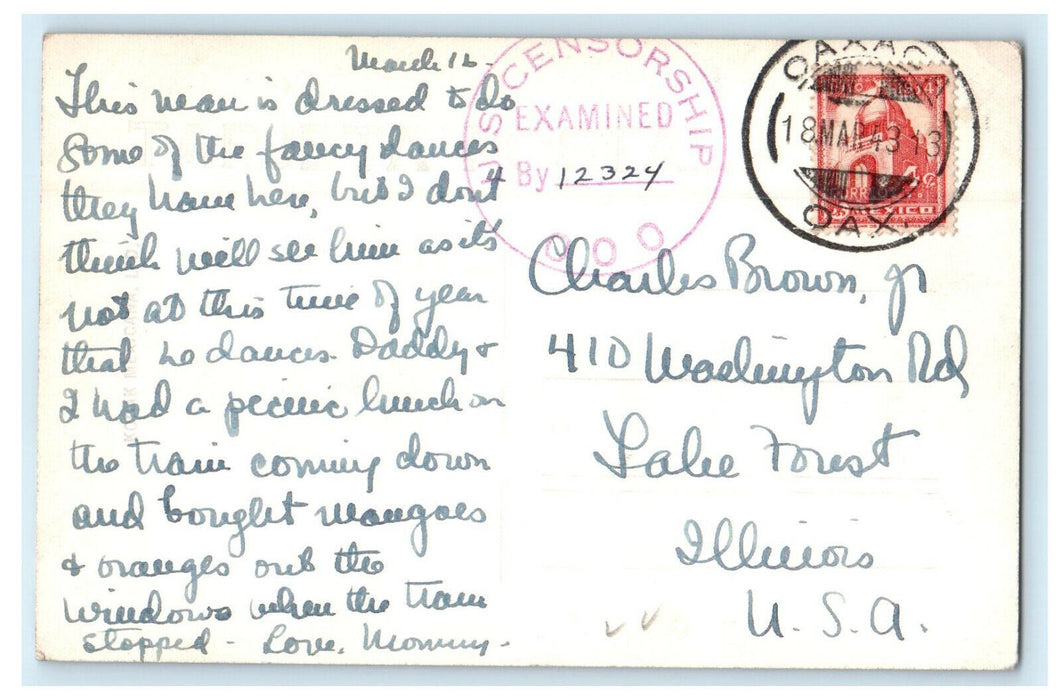 March 16.
This man is dressed to do
some of the fancy dances
they have here, but I don't
think we'll see him as it's
not at this time of year
that he dances. Daddy &
I had a picnic lunch on
the train coming down
and bought mangoes
& oranges out the
windows when the train
stopped - Love, Mommy -
US CENSORSHIP
EXAMINED
By 12324
OAXACA
18 MAR 43 13
OAX.
MEXICO
Charles Brown, jr
410 Washington Rd
Lake Forest
Illinois
U.S.A.